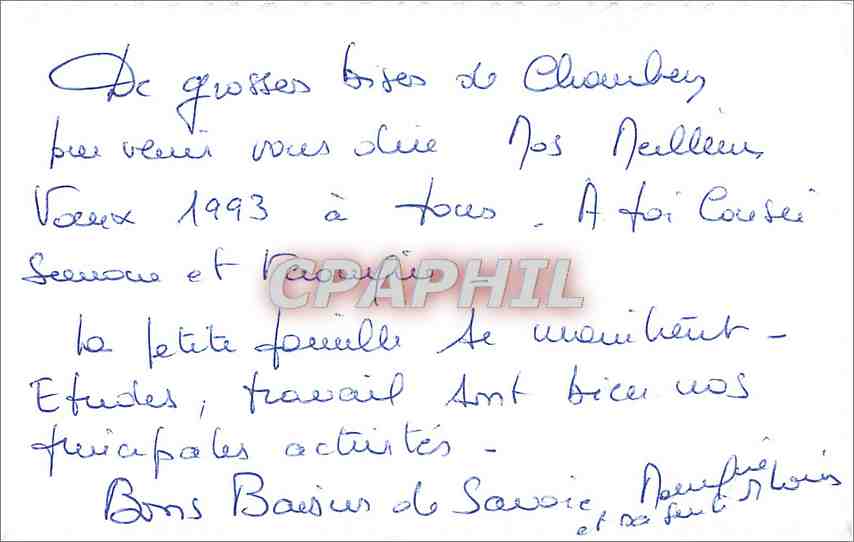 De grosses bises de Chambery
pour venir vous dire Nos Meilleurs
Vœux 1993 à tous. A toi Cousin
Simone et
CPAPHIL
La petite famille se maintient -
Etudes, travail sont bien nos
principales activités -
Bons Baisers de Savoie,
et